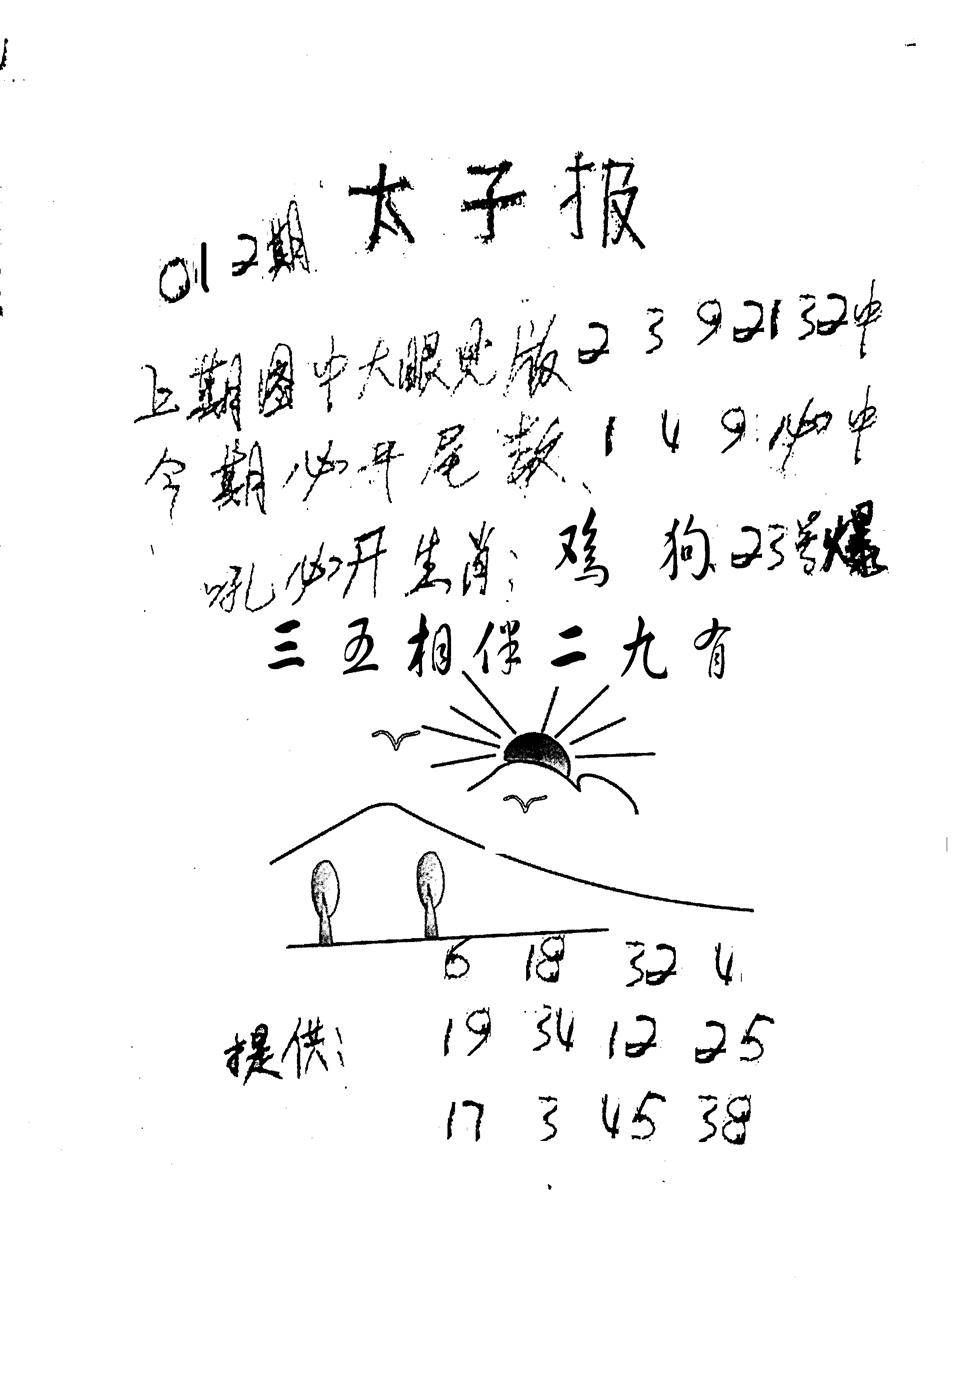 太子报
012期
上期图中大眼见版 2 3 9 21 32中
今期必开尾数、1 4 9 必中
吼必开生肖：鸡 狗 23号爆
三五相伴二九有
6 18 32 4
提供： 19 34 12 25
17 3 45 38